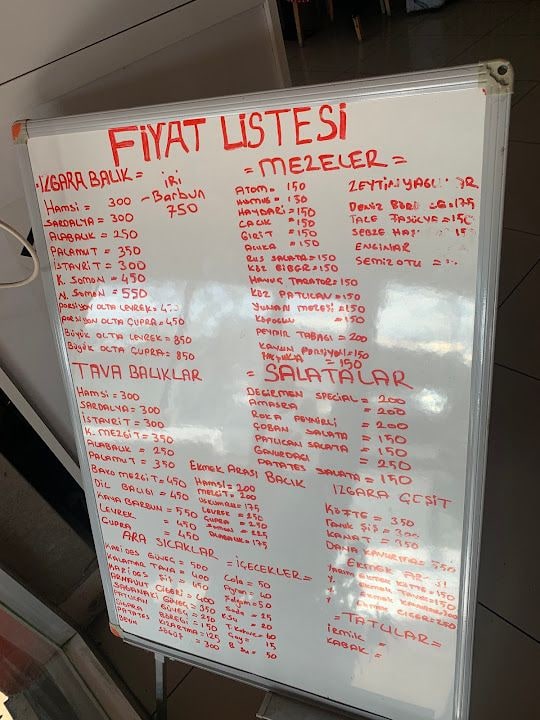 FİYAT LİSTESİ
IZGARA BALIK =
HAMSİ = 300
SARDALYA = 300
ALABALIK = 250
PALAMUT = 350
İSTAVRİT = 300
K. SOMON = 450
N. SOMON = 550
PORSİYON OLTA LEVREK = 450
PORSİYON OLTA ÇUPRA = 450
BÜYÜK OLTA LEVREK = 850
BÜYÜK OLTA ÇUPRA = 850
İRİ
BARBUN
750
= MEZELER =
ATOM = 150
HUMUS = 150
HAYDARİ = 150
CACIK = 150
GİRİT = 150
ACUKA = 150
RUS SALATA = 150
KÖZ BİBER = 150
HAVUÇ TARATOR = 150
KÖZ PATLICAN = 150
YUNAN MEZESİ = 150
KÖPOĞLU = 150
PEYNİR TABAĞI = 200
KAVUN PORSİYON = 150
= 150
ZEYTİNYAĞLI
DENİZ = 175
TAZE FASÜLYE = 150
SEBZE
ENGİNAR
SEMİZOTU =
TAVA BALIKLAR
HAMSİ = 300
SARDALYA = 300
İSTAVRİT = 300
K. MEZGİT = 350
ALABALIK = 250
PALAMUT = 350
BAKO MEZGİT = 450
DİL BALIĞI = 450
KAYA BARBUN = 550
LEVREK = 450
ÇUPRA = 450
= SALATALAR
DEĞİRMEN SPECİAL = 200
AMASRA = 200
ROKA PEYNİRLİ = 200
ÇOBAN SALATA = 150
PATLICAN SALATA = 150
GAVURDAĞI = 250
PATATES SALATA = 150
EKMEK ARASI BALIK
HAMSİ = 200
MEZGİT = 200
USKUMRU = 175
LEVREK = 250
ÇUPRA = 250
SOMON = 225
ALABALIK = 175
IZGARA ÇEŞİT
KÖFTE = 350
TAVUK ŞİŞ = 300
KANAT = 350
DANA KAVURMA = 550
EKMEK
YARIM EKMEK KÖFTE = 150
EKMEK TAVUK = 150
EKMEK KAVURMA
EKMEK CİĞER = 200
ARA SICAKLAR
KARİDES GÜVEÇ = 500
KALAMAR TAVA = 400
KARİDES ŞİŞ = 450
ARNAVUT CİĞERİ = 400
SAGANAKI GÜVEÇ = 350
PATLICAN GÜVEÇ = 250
SİGARA BÖREĞİ = 150
PATATES KIZARTMA = 125
BEYİN SÖĞÜŞ = 300
= İÇECEKLER =
COLA = 50
AYRAN = 40
ŞALGAM = 50
SODA = 25
B. SU = 50
= TATLILAR =
İRMİK =
KABAK =